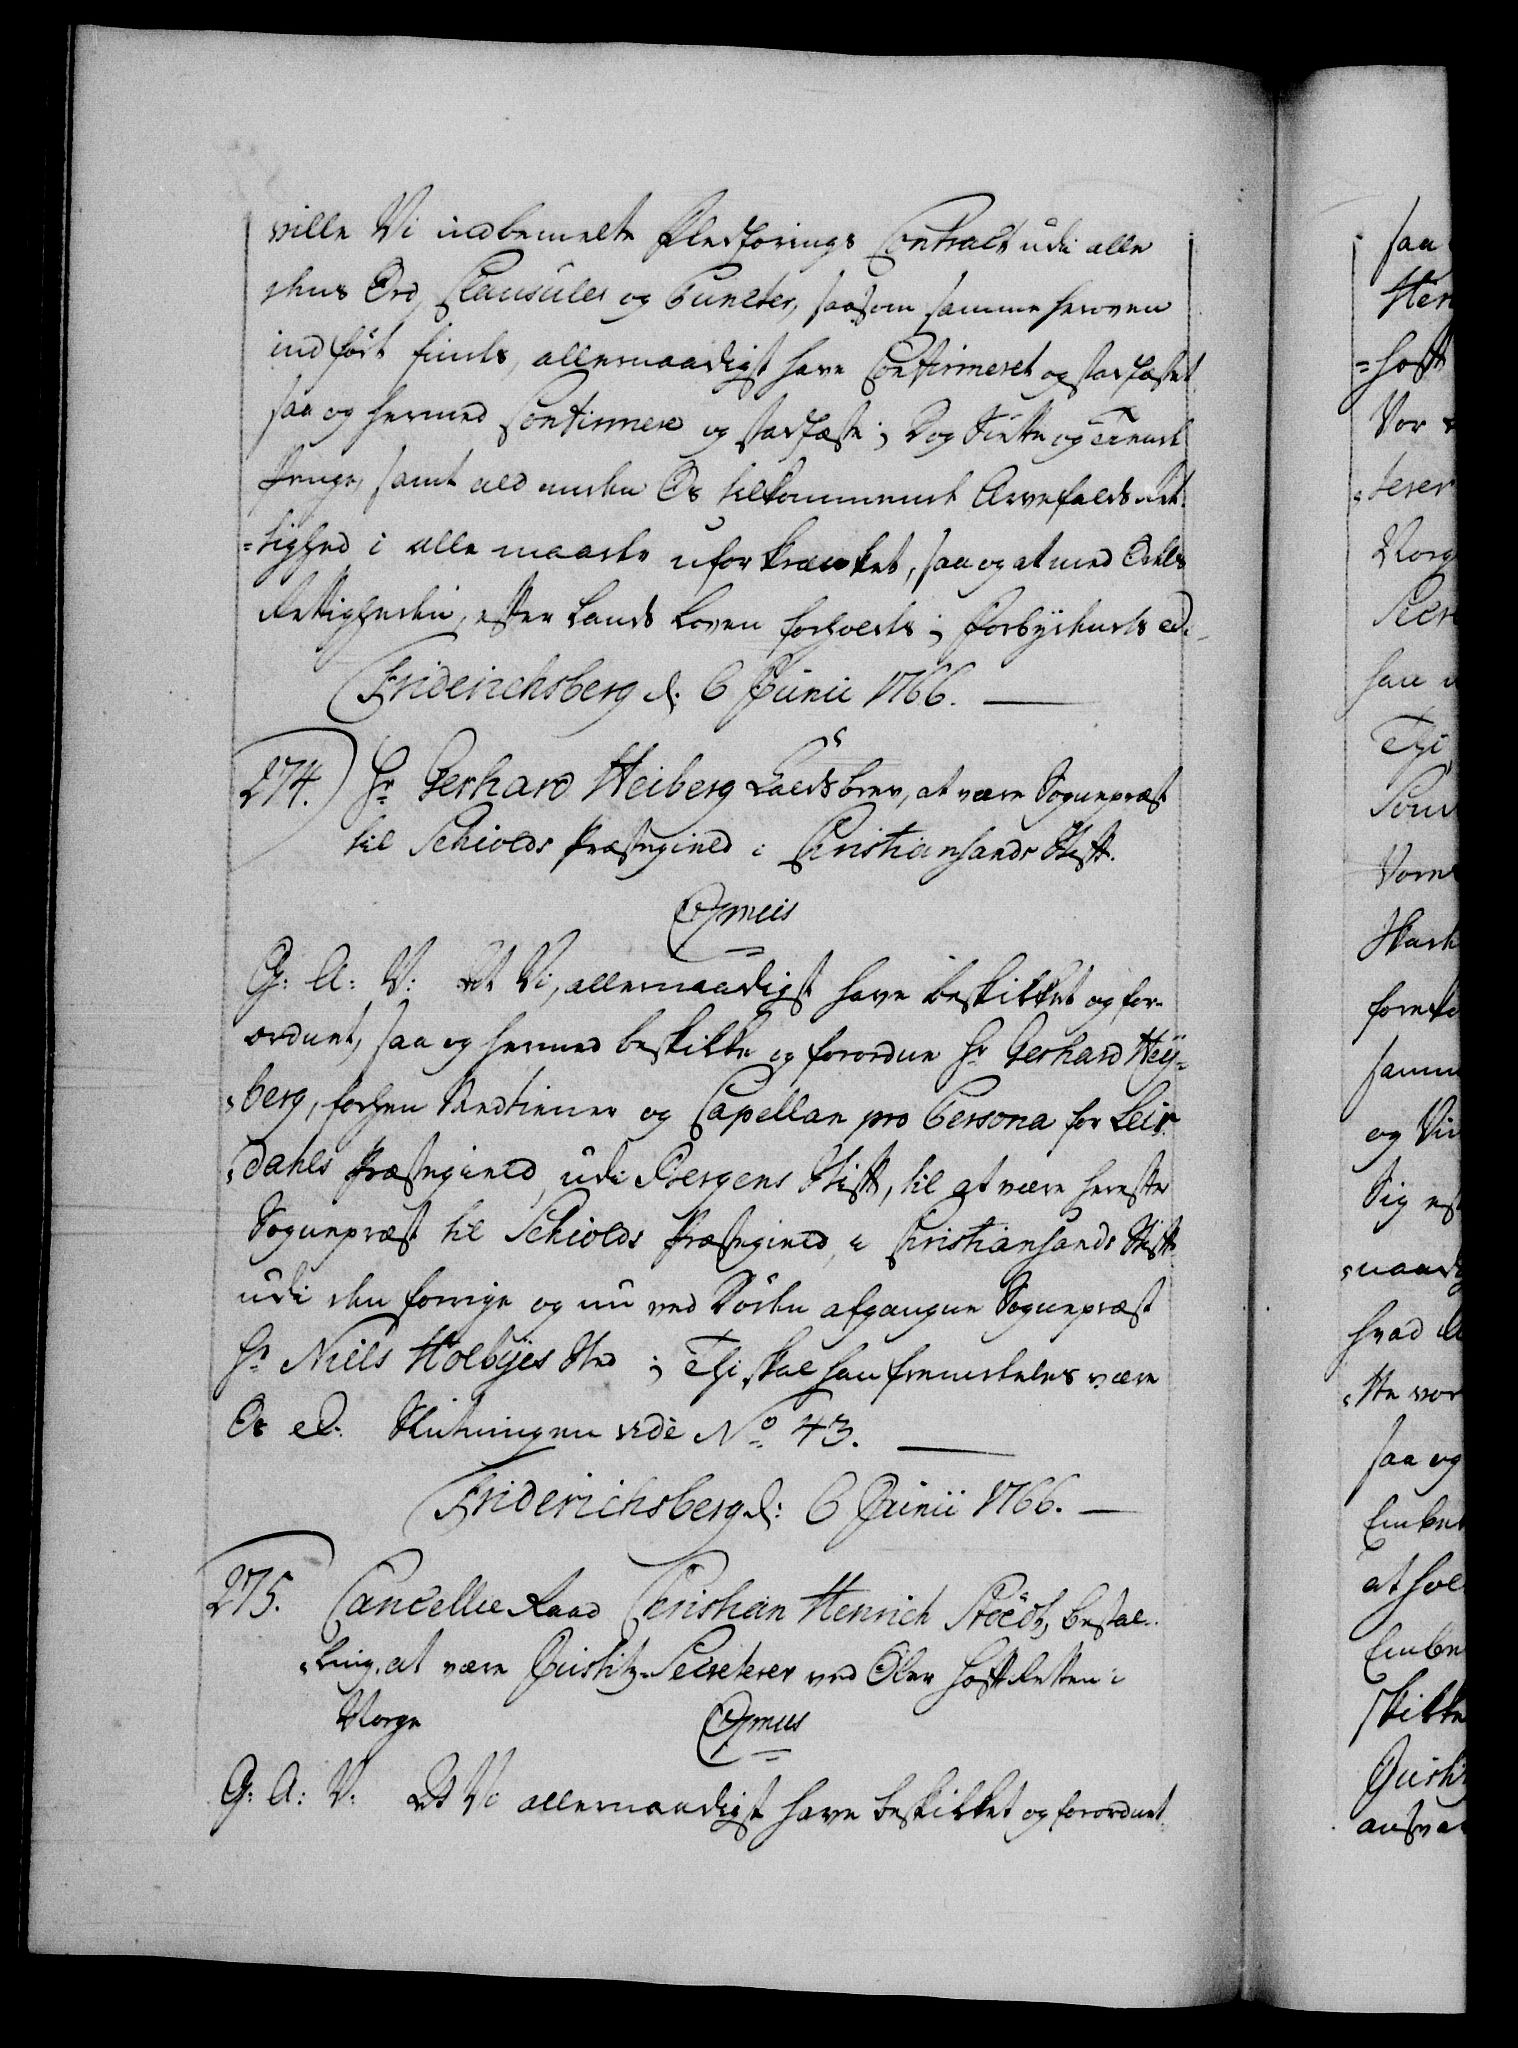 ville Vi indbemelte Fledførings Contract udi alle
dens Ord, Clausuler og Puncter, saasom samme heroven
indført findes, allernaadigst have Confirmeret og stadfæstet
saa og hermed Confirmere og stadfæste; Dog Siette og Tiende
Penge, samt ald anden Os tilkommende Arvefalds Ret-
=tighed i alle maader uforkrænket, saa og at med Odels
Rettigheden, efter Lands Loven forholdes; Forbydendes ec.
Friderichsberg d. 6 Junii 1766.
274.) Hr Gerhard Heiberg Kaldsbrev, at være Sognepræst
til Schiolds Præstegield i Christiansands Stift.
Opmeis
G: A: V: At Vi, allernaadigst have beskikket og for-
ordnet, saa og hermed beskikke og forordne Hr Gerhard Hey-
=berg, forhen Medtiener og Capellan pro Persona for Leir-
=dahls Præstegield, udi Bergens Stift, til at være herefter
Sognepræst til Schiolds Præstegield, i Christiansands Stift
udi den forrige og nu ved Døden afgangne Sognepræst
Hr Niels Holbyes Sted; Thi skal han fremdeles være
Os ec: Slutningen vide No 43.
Friderichsberg d: 6 Junii 1766.
275. Cancellie Raad Christian Henrich Bestal-
=ling, at være Justitz-Secreterer ved Over Hoff Retten i
Norge
G: A: V: At Vi allernaadigst have beskikket og forordnet
saa
=hoff
Vor
=terer
Norg
Secre
han
Thi
Vorne
foresk
samm
og Vi
Sig
=naadig
hvad
=te vor
saa og
Embe
at hol
Embe
skikke
Justi
ansva